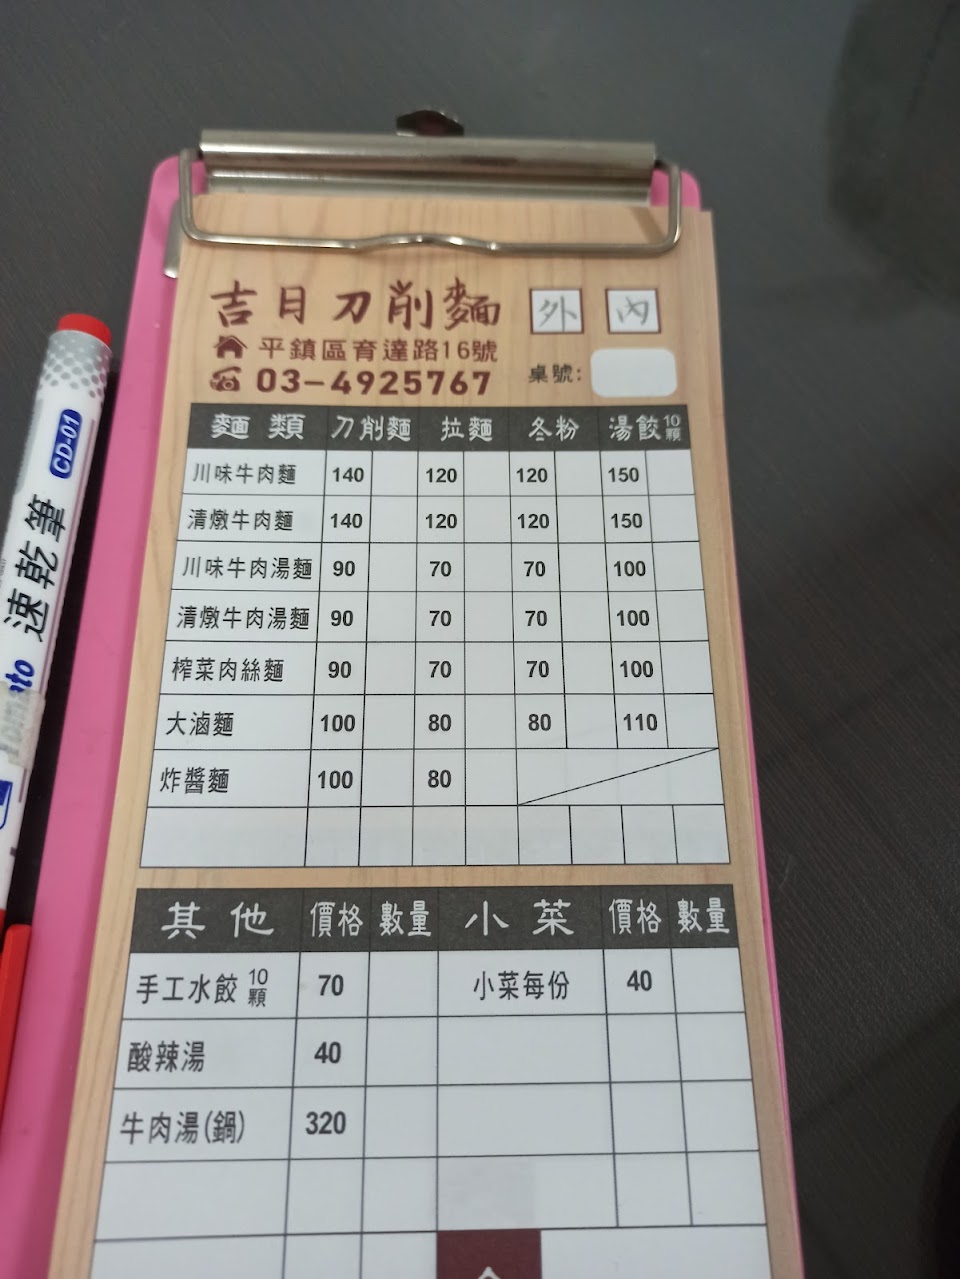 吉月刀削麵 外 內
平鎮區育達路16號
03-4925767 桌號:
麵類 刀削麵 拉麵 冬粉 湯餃10顆
川味牛肉麵 140 120 120 150
清燉牛肉麵 140 120 120 150
川味牛肉湯麵 90 70 70 100
清燉牛肉湯麵 90 70 70 100
榨菜肉絲麵 90 70 70 100
大滷麵 100 80 80 110
炸醬麵 100 80
其他 價格 數量 小菜 價格 數量
手工水餃10顆 70 小菜每份 40
酸辣湯 40
牛肉湯(鍋) 320
CD-01
速乾筆